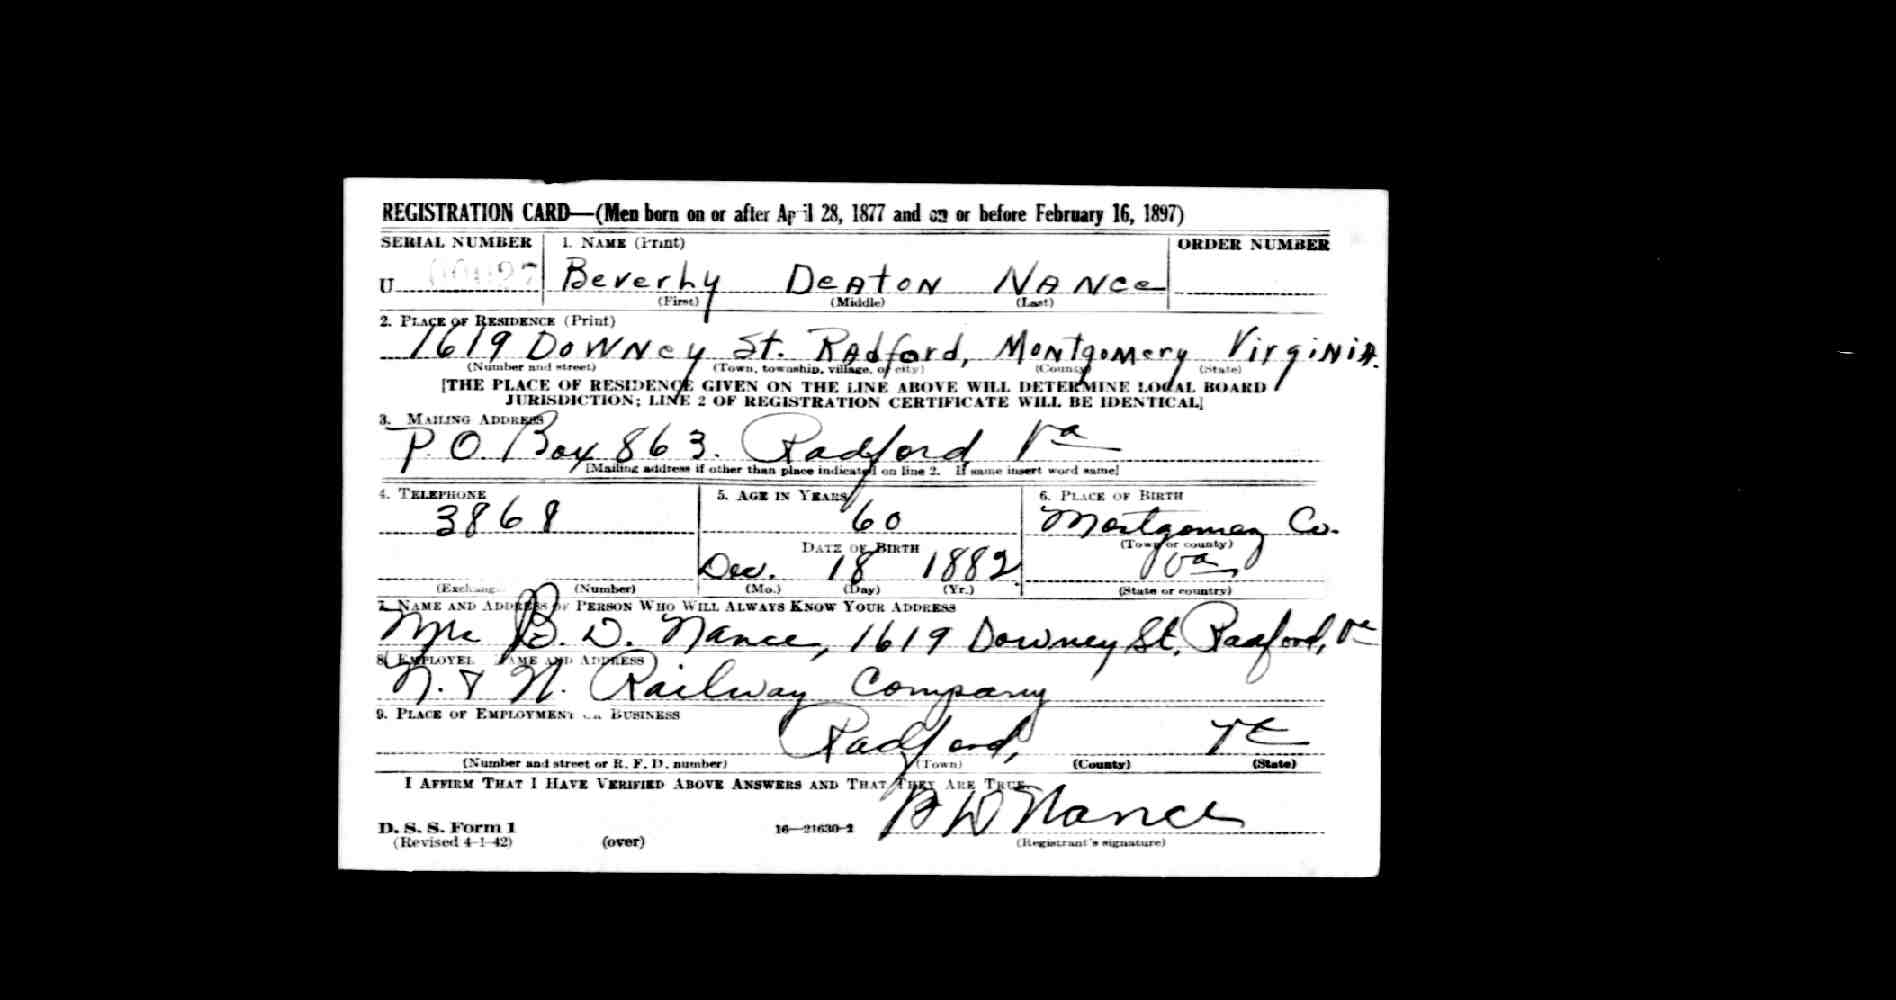 REGISTRATION CARD—(Men born on or after April 28, 1877 and on or before February 16, 1897)
SERIAL NUMBER 1. NAME (Print) ORDER NUMBER
U Beverly DeAtoN NANce
(First) (Middle) (Last)
2. PLACE OF RESIDENCE (Print)
1619 DowNey St. RAdford, MoNtgomery VirgiNiA.
(Number and street) (Town, township, village, or city) (County) (State)
[THE PLACE OF RESIDENCE GIVEN ON THE LINE ABOVE WILL DETERMINE LOCAL BOARD
JURISDICTION; LINE 2 OF REGISTRATION CERTIFICATE WILL BE IDENTICAL]
3. MAILING ADDRESS
P.O. Box 863. Radford Va
[Mailing address if other than place indicated on line 2. If same insert word same]
4. TELEPHONE 5. AGE IN YEARS 6. PLACE OF BIRTH
3868 60 Montgomery Co.
DATE OF BIRTH (Town or county)
Dec. 18 1882 Va
(Exchange) (Number) (Mo.) (Day) (Yr.) (State or country)
7. NAME AND ADDRESS OF PERSON WHO WILL ALWAYS KNOW YOUR ADDRESS
B. D. Nance, 1619 Downey St. Radford, Va
8. EMPLOYER'S NAME AND ADDRESS
N. & W. Railway Company
9. PLACE OF EMPLOYMENT OR BUSINESS
Radford, Va
(Number and street or R. F. D. number) (Town) (County) (State)
I AFFIRM THAT I HAVE VERIFIED ABOVE ANSWERS AND THAT THEY ARE TRUE.
B D Nance
D. S. S. Form 1 16—21630-2
(Revised 4-1-42) (over) (Registrant's signature)